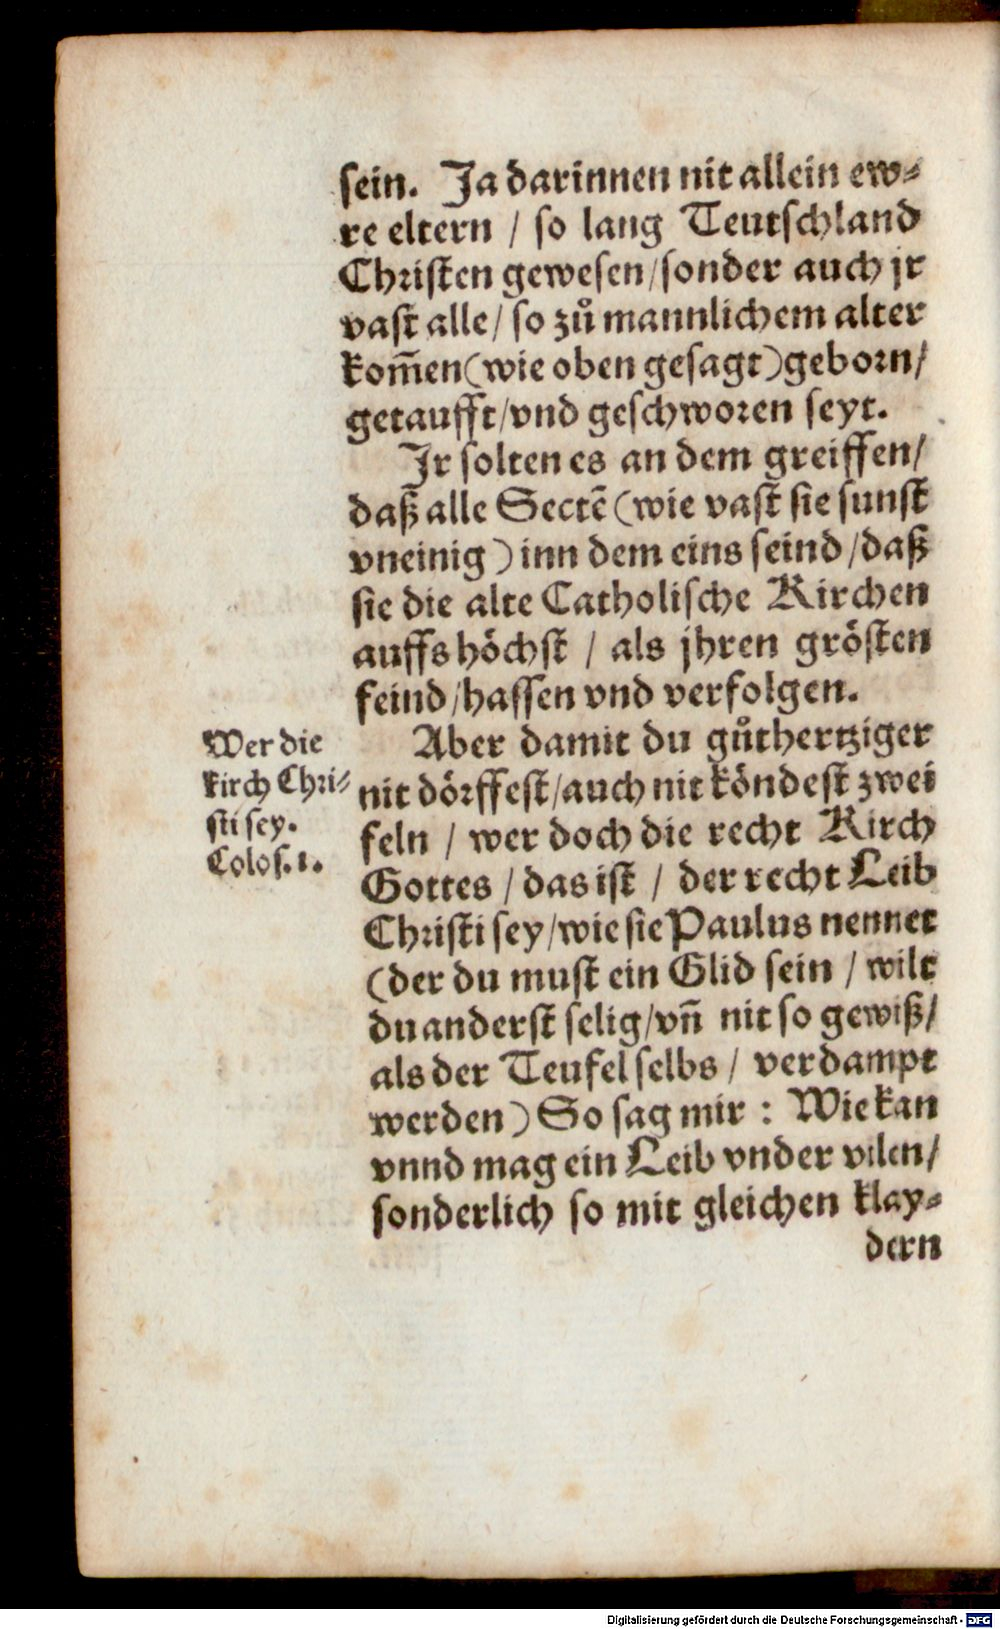 sein. Ja darinnen nit allein ew-
re eltern / so lang Teutschland
Christen gewesen / sonder auch jr
vast alle / so zů mannlichem alter
kom̃en (wie oben gesagt) geborn /
getaufft / vnd geschworen seyt.
Ir solten es an dem greiffen /
daß alle Sectẽ (wie vast sie sunst
vneinig) inn dem eins seind / daß
sie die alte Catholische Kirchen
auffs höchst / als jhren grösten
feind / hassen vnd verfolgen.
Wer die
kirch Chri-
sti sey.
Colos. 1.
Aber damit du gůthertziger
nit dörffest / auch nit köndest zwei
feln / wer doch die recht Kirch
Gottes / das ist / der recht Leib
Christi sey / wie sie Paulus nennet
(der du must ein Glid sein / wilt
du anderst selig / vñ nit so gewiß /
als der Teufel selbs / verdampt
werden) So sag mir : Wie kan
vnnd mag ein Leib vnder vilen /
sonderlich so mit gleichen klay-
dern
Digitalisierung gefördert durch die Deutsche Forschungsgemeinschaft - DFG